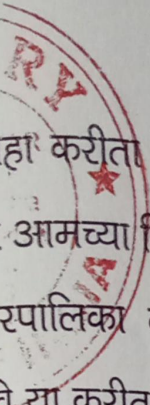 RY
हा करीता
आमच्या
रपालिका
या करीत